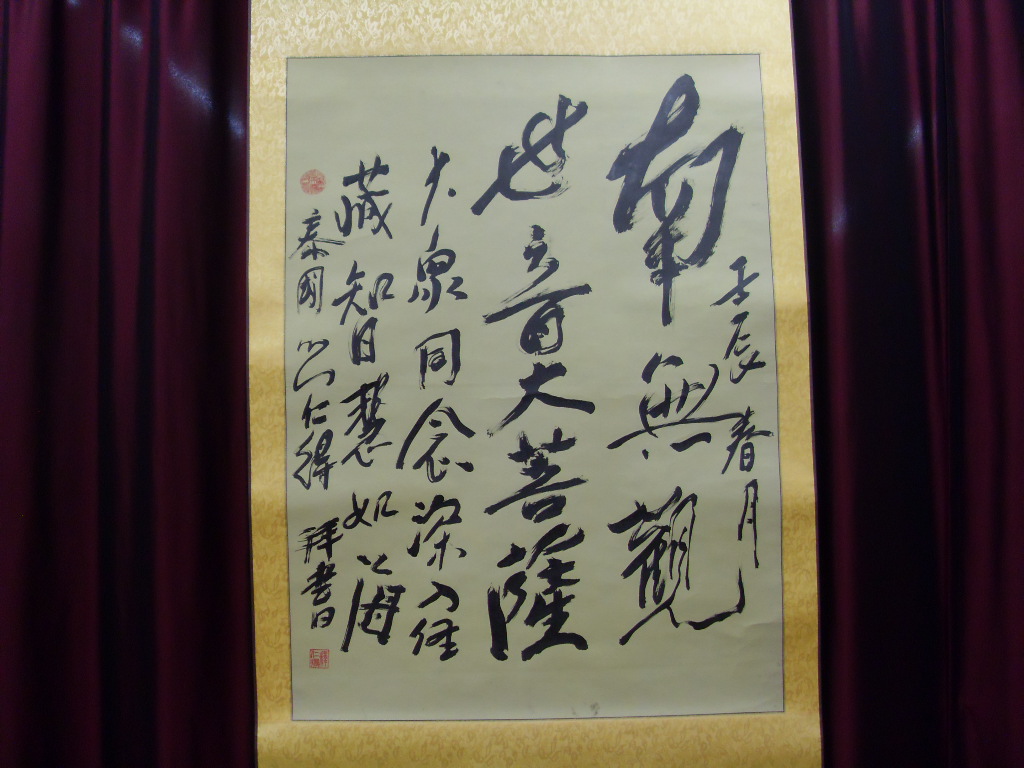 壬辰春月
南無觀
世音大菩薩
大眾同念深入經
藏智慧如海
泰國 仁得 拜書